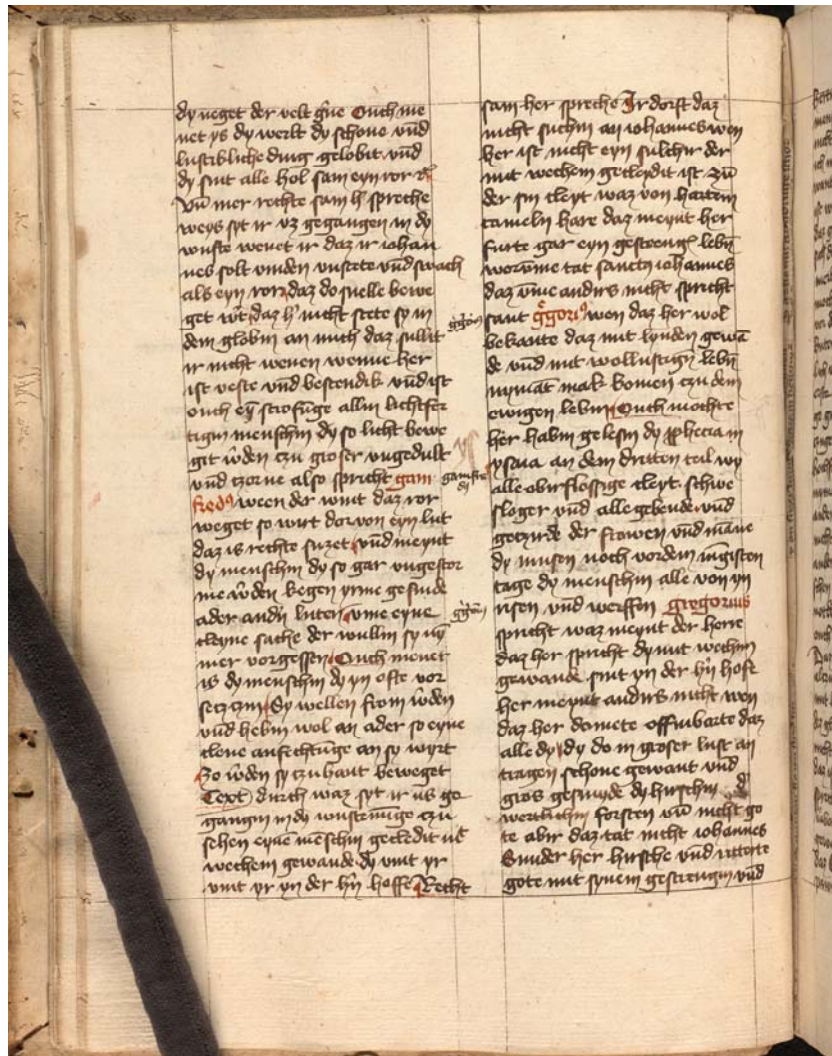 dy neget der velt gūe Ouch me
net ys dy werlt dy schone vnd
lustibliche ding gelobit vnd
dy sint alle hol sam eyn ror
Vñ mer rechte sam h̕ spreche
weys syt ir vz gegangen in dy
wuste wenet ir daz ir iohan
nes solt vinden vnstete vnd swach
als eyn ror daz do snelle bewe
get w̕t daz h̕ nicht stete sy in
dem glōbin an mich daz sullit
ir nicht wenen wenne her
ist veste vnd bestendik vnd ist
ouch eyn strofūge allin lichtfer
tigin menschin dy so licht bewe
git w̕den czu groser vngedult
vnd czorne also spricht gam
fred⁹ ween der wint daz ror
weget so wirt dor von eyn lut
daz is rechte suzet vnd meynt
dy menschin dy so gar vngestor
me w̕den kegen yrme gesinde
ader and̕n luten vme eyne
cleyne sache der wullin sy ny
mer vorgessen Ouch menet
is dy menschin dy yn ofte vor
seczczin Sy wellen from w̕den
vnd hebin wol an ader so eyne
clene anfechtūge an sy wyrt
So w̕den sy czu hant beweget
Text durch waz syt ir us ge
gangin in dy wustenūge czu
sehen eyne mēschin gecledit mit
wechem gewande dy vmit yr
vmit yr yn der h̕n hoffe Recht
sam her spreche Ir dorft daz
nicht suchin an iohannes wen
her ist nicht eyn sulchir der
mit wechem gecleydit ist
der sin cleyt waz von hartem
cameln hare daz meynt her
furte gar eyn gestreng̕ lebn̄
worūme tat sanct⁹ iohannes
daz vme andirs nicht spricht
sant g̊gori⁹ wen daz her wol
bekante daz mit lynden gewā
de vnd mit wollustigin lebn̄
nymāt mak komen czu dem
ewigen lebin Ouch mochte
her habin gelesin dy ꝓphecia in
ysaia an dem dritten teil wy
alle obirflossige cleyt schwe
sloger vnd alle gebende vnd
geczirde der frowen vnd māne
dy musen noch vordem iūgisten
tage dy menschin alle von yn
risen vnd werffen gregorius
spricht waz meynt der herre
daz her spricht dy mit wechin
gewande sint yn der h̕n hofe
her meynt andirs nicht wen
daz her domete offinbarte daz
alle dy dy do in groser lust an
tragen schone gewant vnd
gros gesmyde dy hirschin d̕
wertlichin forsten vñ nicht go
te abir daz tat nicht iohannes
Sunder her hirsche vnd ritterte
gote mit synem gestrengin vnd